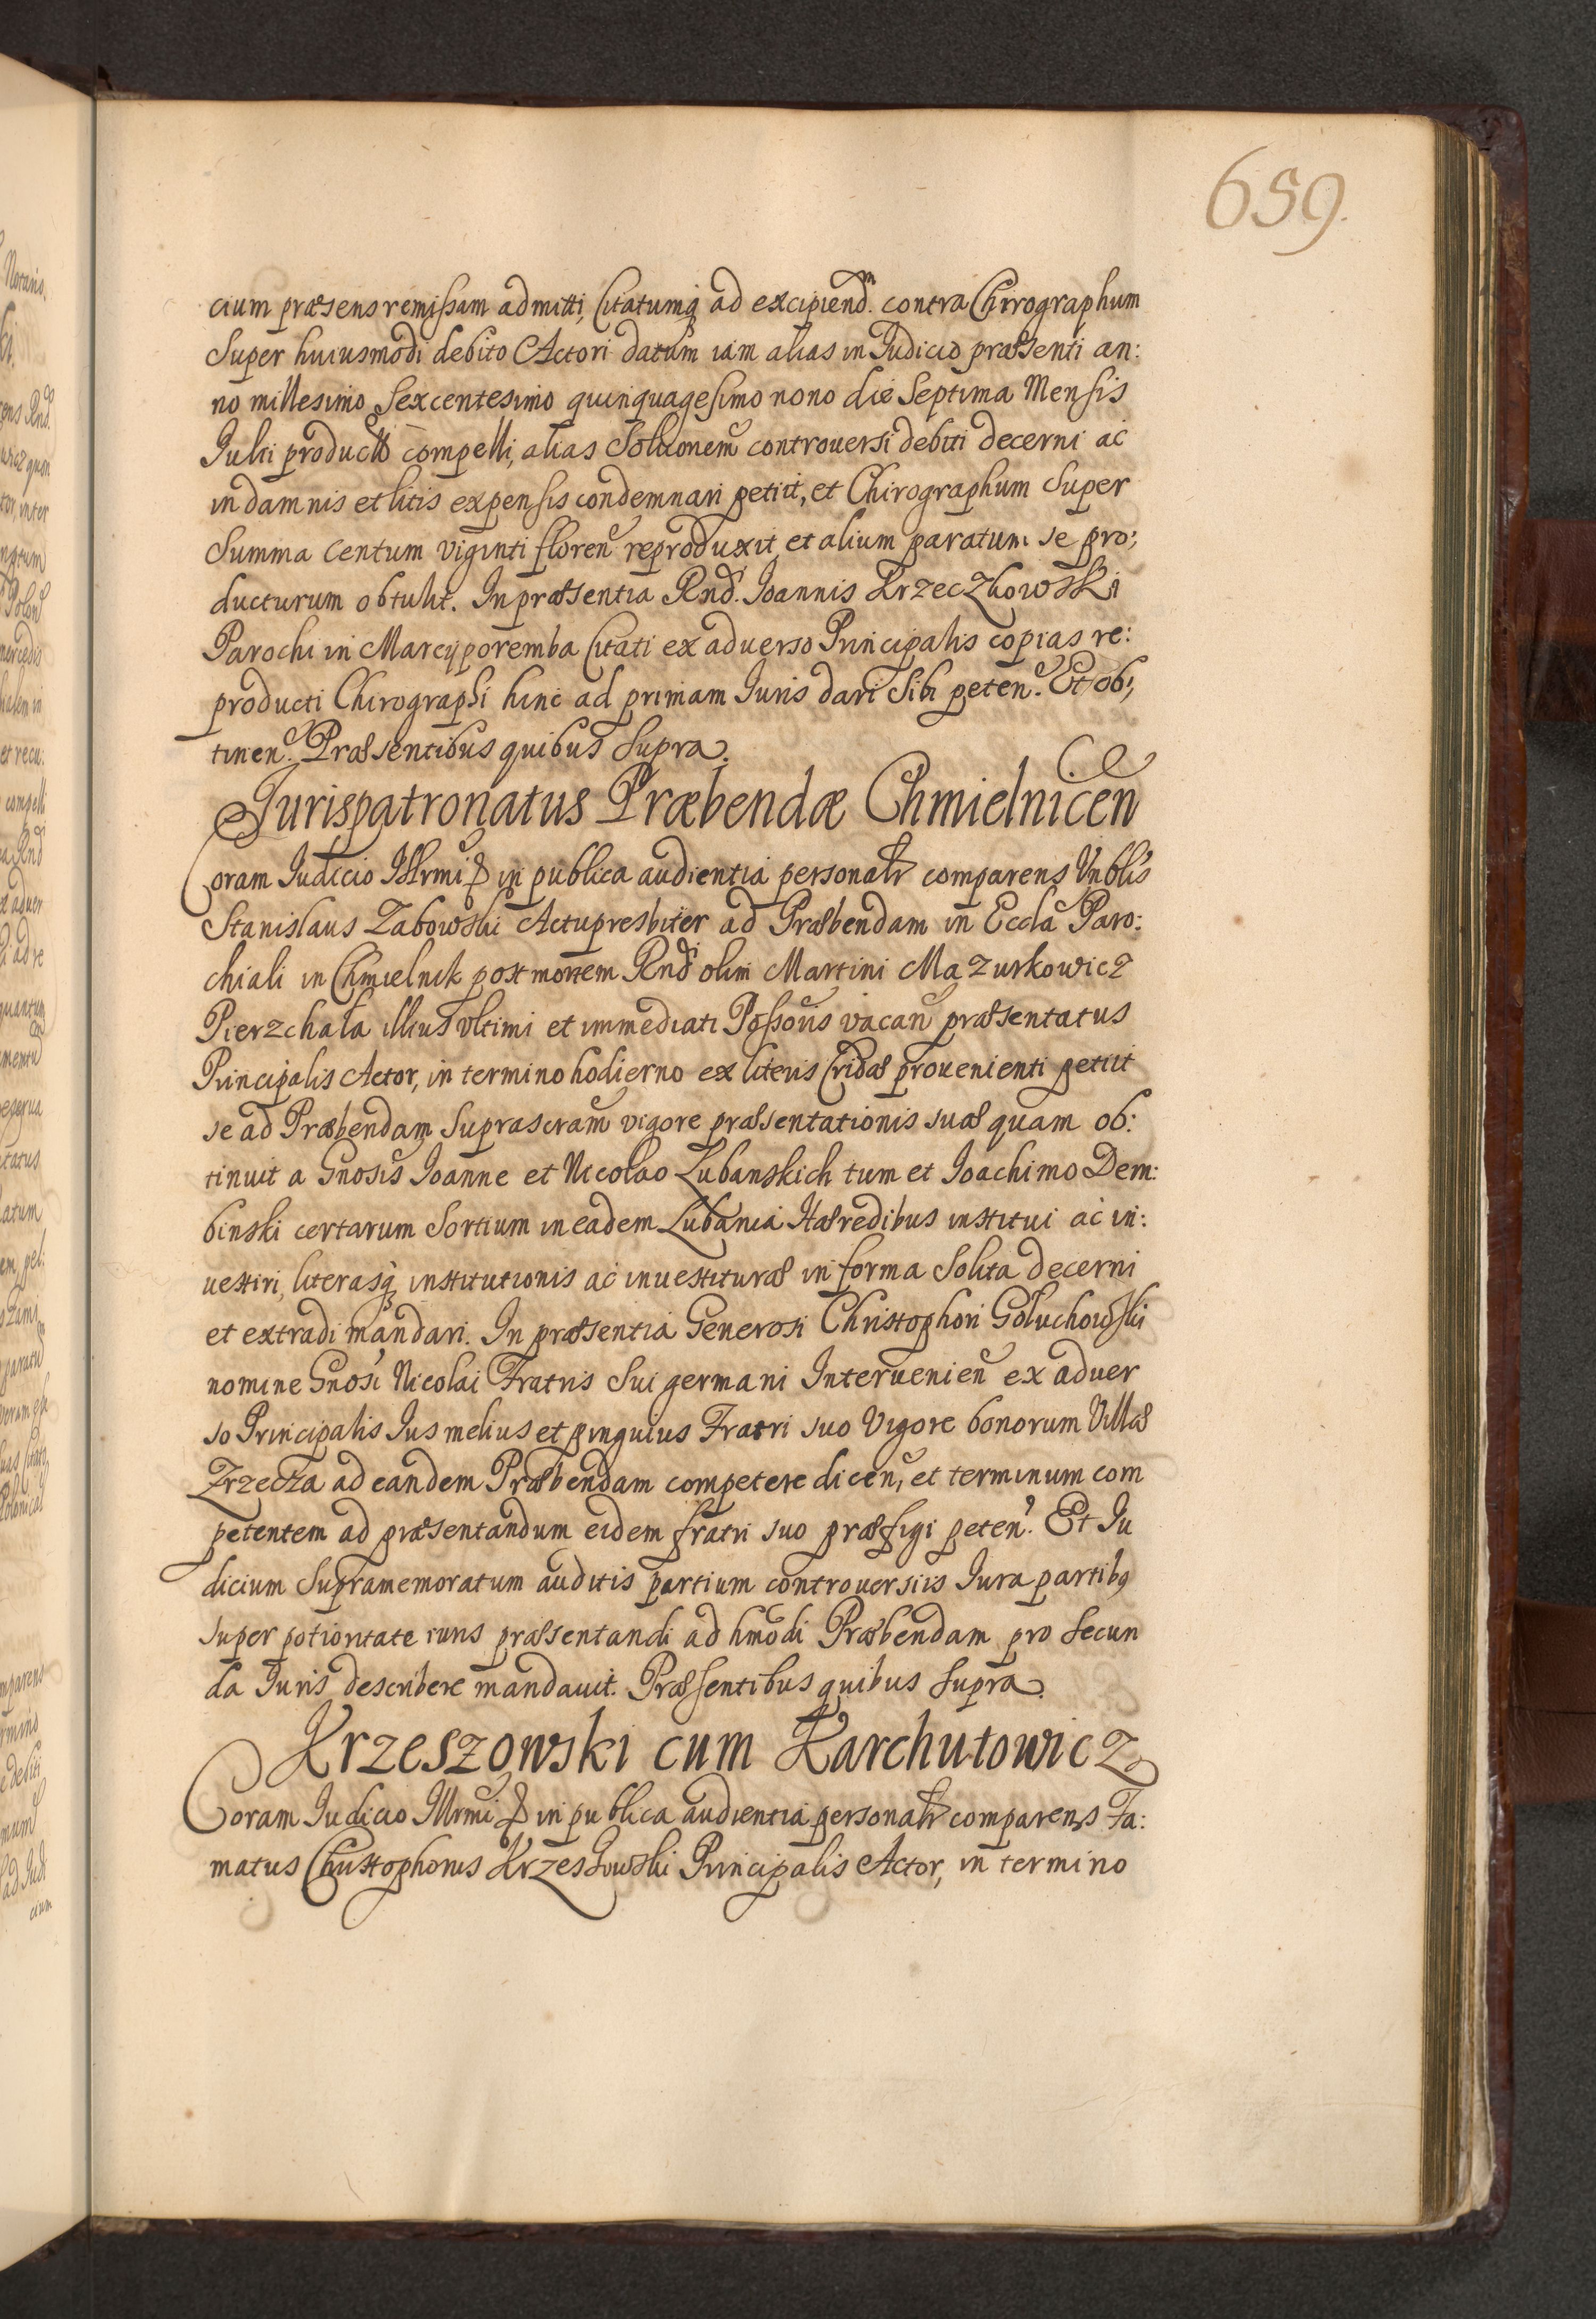 659.
cium præsens remissam admitti, Citatumq ad excipiend.m contra Chirographum
Super huiusmodi debito Actori datum iam alias in Judicio præsenti an:
no millesimo Sexcentesimo quinquagesimo nono die Septima Mensis
Julii producto compelli, alias Solutionem controuersi debiti decerni ac
in damnis et litis expensis condemnari petiit, et Chirographum Super
Summa Centum viginti floren reproduxit et alium paratum se pro:
ducturum obtulit. In præsentia Rnd. Joannis Krzeczkowski
Parochi in Marcyporemba Citati ex aduerso Principalis copias re:
producti Chirographi hinc ad primam Juris dari Sibi peten. Et ob:
tinen. Præsentibus quibus Supra.
Jurispatronatus Præbendæ Chmielnicen
Coram Judicio Illrmi & in publica audientia personalr comparens Vnblis
Stanislaus Zabowski Actupresbiter ad Præbendam in Eccla Paro:
chiali in Chmielnik post mortem Rnd olim Martini Mazurkowicz
Pierzchała illius vltimi et immediati Possoris vacan præsentatus
Principalis Actor, in termino hodierno ex literis Cridæ prouenienti petiit
se ad Præbendam Suprascram vigore præsentationis suæ quam ob:
tinuit a Gnosis Joanne et Nicolao Lubanskich tum et Joachimo Dem:
binski certarum Sortium in eadem Lubania Hæredibus institui ac in:
uestiri, literasq institutionis ac inuestituræ in forma Solita decerni
et extradi mandari. In præsentia Generosi Christophori Goluchowski
nomine Gnosi Nicolai Fratris Sui germani Interuenien ex aduer
so Principalis Jus melius et pinguius Fratri suo Vigore bonorum Villæ
Zrzecza ad eandem Præbendam competere dicen, et terminum com
petentem ad præsentandum eidem fratri suo præfigi peten. Et Ju
dicium Supramemoratum auditis partium controuersiis Jura partibq
super potioritate iuris præsentandi ad hmodi Præbendam pro Secun
da Juris describere mandauit. Præsentibus quibus Supra.
Krzeszowski cum Karchutowicz
Coram Judicio Illrmi & in publica audientia personalr comparens Fa:
matus Christophorus Krzeszowski Principalis Actor, in termino